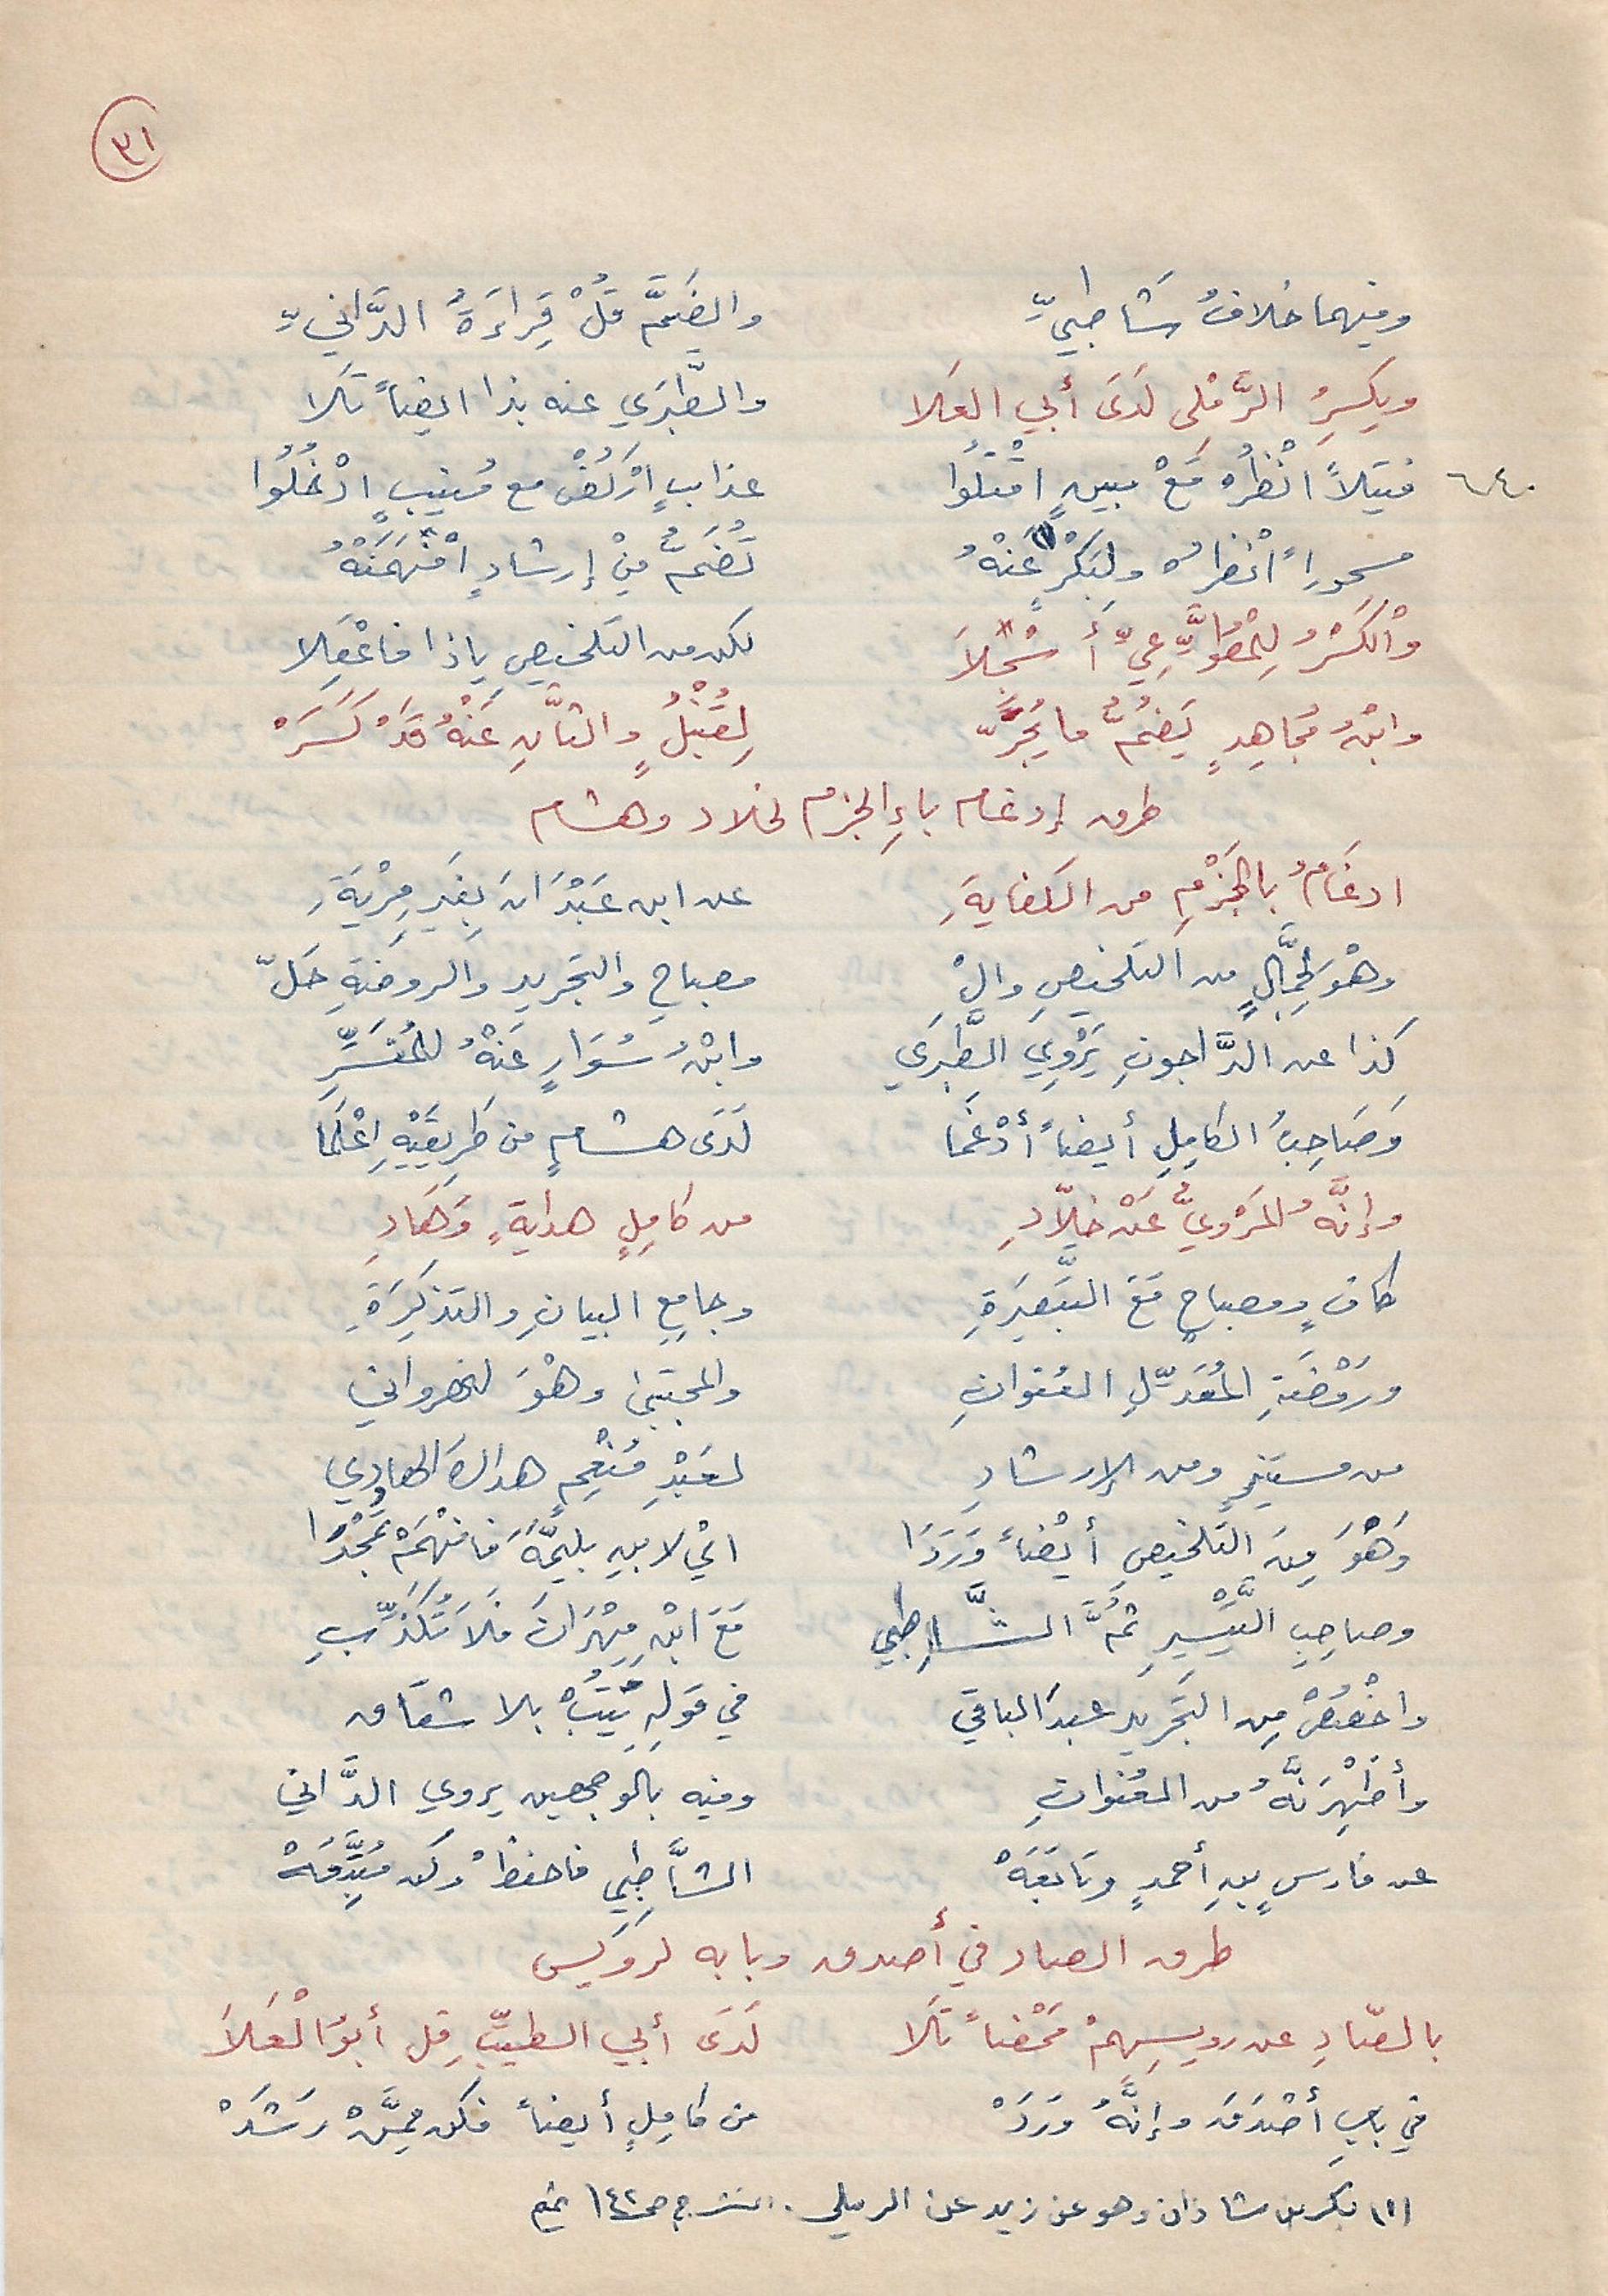 ٣١
وفيهما خلافُ شَاطِبيِّ والضَّمَّ قُلْ قِرَاءَةُ الدَّانيِّ
ويكسِرُ الرَّمْلى لَدَى أبي العَلا والطَّبَرَي عنه بذا ايضاً تَلا
٦٤٠ فتيلاً انْظُرْ مَعْ مبينٍ اقْتُلُوا عذابٍ ارْكُضْ مع مُنيبٍ ادْخُلُوا
مسحوراً انْظُرْ ولِبَكْرٍ (١) عَنْهُ تُضَمُّ مِنْ إرشادٍ افْهَمَنْهُ
وَالْكَسْرُ لِلْمُطَّوِّعِيِّ أُسْجِلاَ لكن من التلخيصِ ياذا فاعْقِلا
وابْنُ مُجَاهِدٍ يَضُمُّ ما يُجَرّ لِقُنْبُلٍ والثَّانِ عَنْهُ قَدْ كَسَرْ
طرق إدغام باءِ الجزم لخلاد وهشام
ادغَامُ بالجَزْمِ من الكفايةِ عن ابن عَبْدَانَ بِغَيرِ مِرْيَةِ
وهْوَ لِجمَّالٍ من التلخيصِ والْ مصباحِ والتجريدِ والروضةِ حَلّ
كذا عن الدَّاجونِ يَرْوِي الطَّبَرَي وابْنُ سُوَارٍ عَنْهُ للمُفَسِّرِ
وَصَاحِبُ الكامِلِ أيضاً أدْغَمَا لَدَى هشامٍ من طَرِيقَيْهِ اعْلَمَا
وإنَّهُ المَرْوِيُّ عَنْ خلَّادِ من كامِلٍ هدايةٍ وَهَادِ
كافٍ ومصباحٍ مَعَ التَّبْصِرَةِ وجامِعِ البيانِ والتذكِرَةِ
ورَوْضَةِ المُعَدِّلِ العُنوانِ والمجتبىٰ وهْوَ لنهرواني
من مستنيرٍ ومن الإرشادِ لعَبْدِ مُنْعِمٍ هداك الهادِي
وَهْوَ مِنَ التلخيصِ أيْضاً وَرَدَا ايْ لابنِ بليمَةَ فافْهَمْ تَمْجُدَا
وصاحِبِ التَّيْسيرِ ثُمَّ الشَّاطِبي مَعَ ابْنِ مِهْرَانَ فَلاَ تُكَذِّبِ
واخْصُصْ مِن التجريدِ عبدَ الباقي في قولِهِ يَتُبْ بلا شقاق
وأظْهِرَنَّهُ من العُنوانِ وفيه بالوجهين يروي الدَّاني
عن فارسٍ بنِ أحمدٍ وتابَعَهْ الشَّاطِبي فاحفظْ وكن مُتَّبِعَهْ
طرق الصاد في أصدق وبابه لرُوَيس
بالصّادِ عن رويسِهِمْ مَحْضاً تَلا لَدَى أبي الطيِّبِ قل أبوُ الْعَلاَ
في بابِ أصْدَقَ وإنَّهُ وَرَدْ من كامِلٍ أيضاً فكن مِمَّنْ رَشَدْ
(١) بكر بن شاذان وهو عن زيد عن الرملي . النشر ج ص ١٤٢